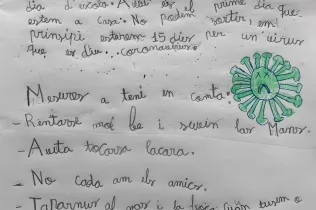 dia d'escola. Avui es el prime dia que
estem a casa. No podem sortir, en
prinsipi estarem 15 dies per un virus
que es diu... coronavirus.
Mesures a teni en conta:
- Rentarse mol be i sevein las Mans.
- Avita tocarsa lacara.
- No cada am els amics.
- Taparnus al nas i la boca cuan tusim o